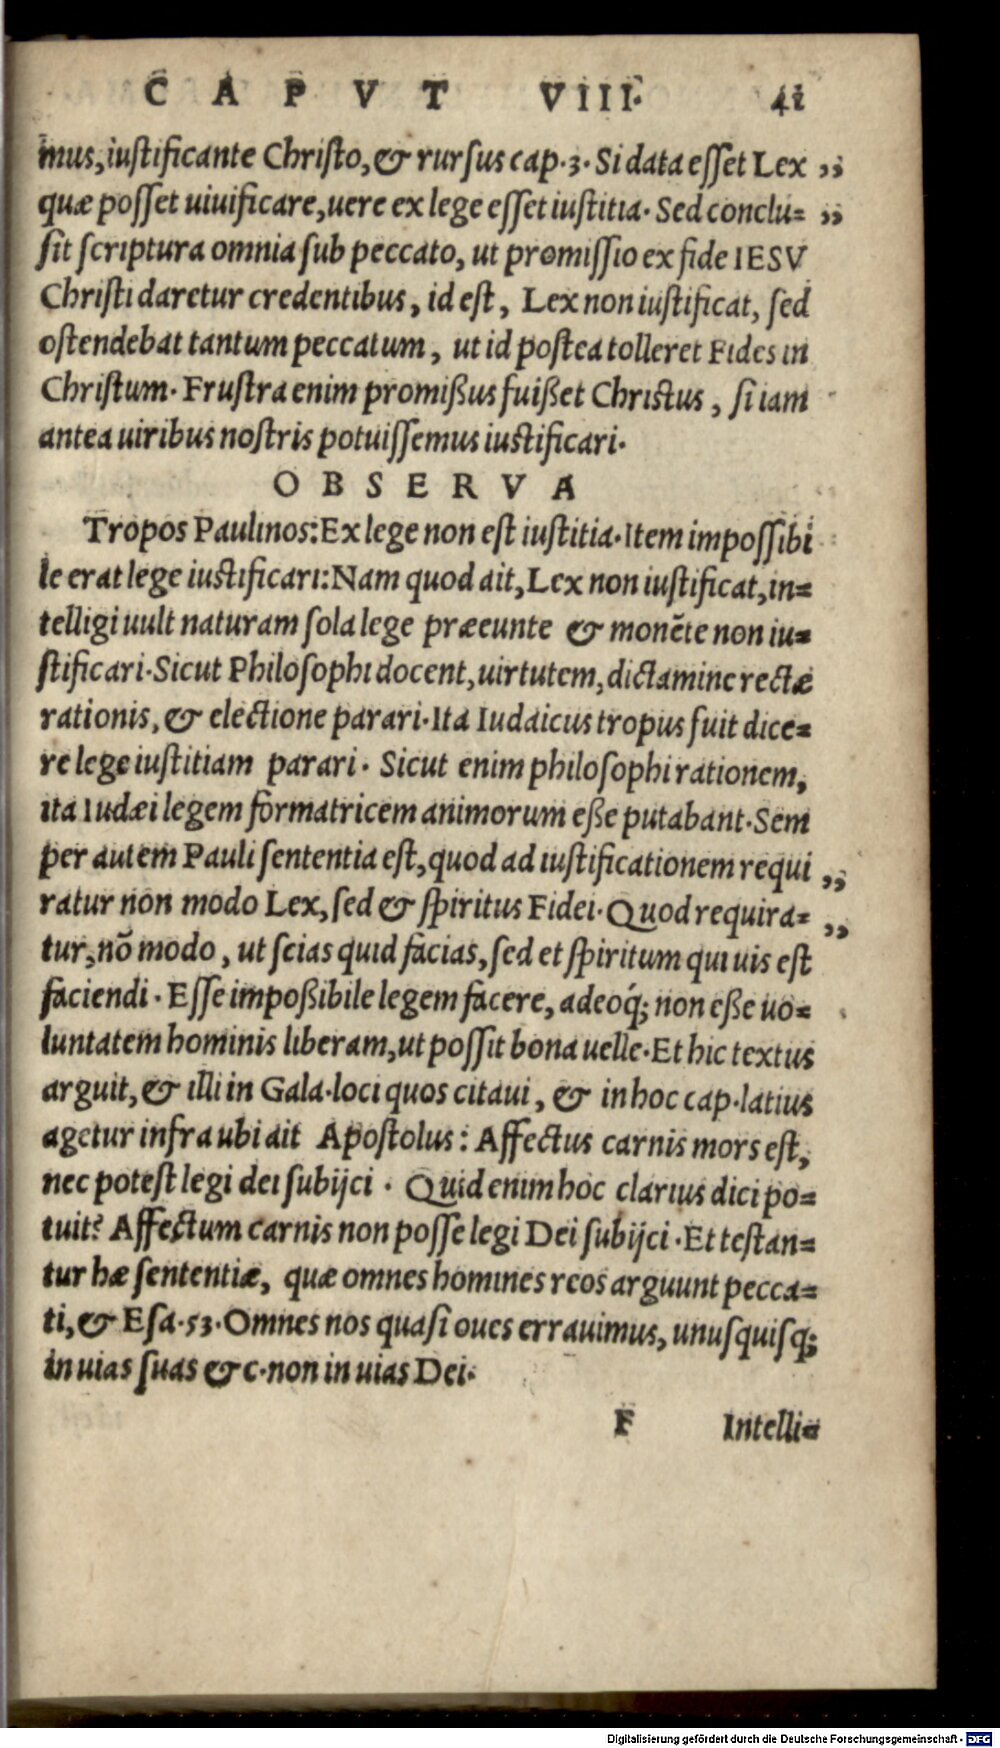 CAPVT VIII. 41
mus, iustificante Christo, & rursus cap.3. Si data esset Lex ,,
quæ posset uiuificare, uere ex lege esset iustitia. Sed conclu= ,,
sit scriptura omnia sub peccato, ut promissio ex fide IESV
Christi daretur credentibus, id est, Lex non iustificat, sed
ostendebat tantum peccatum, ut id postea tolleret Fides in
Christum. Frustra enim promißus fuißet Christus, si iam
antea uiribus nostris potuissemus iustificari.
OBSERVA
Tropos Paulinos: Ex lege non est iustitia. Item impossibi
le erat lege iustificari: Nam quod ait, Lex non iustificat, in=
telligi uult naturam sola lege præeunte & monēte non iu=
stificari. Sicut Philosophi docent, uirtutem, dictamine rectæ
rationis, & electione parari. Ita Iudaicus tropus fuit dice=
re lege iustitiam parari. Sicut enim philosophi rationem,
ita Iudæi legem formatricem animorum eße putabant. Sem
per autem Pauli sententia est, quod ad iustificationem requi ,,
ratur non modo Lex, sed & spiritus Fidei. Quod requira= ,,
tur, nō modo, ut scias quid facias, sed et spiritum qui uis est
faciendi. Esse impoßibile legem facere, adeoq́; non eße uo=
luntatem hominis liberam, ut possit bona uelle. Et hic textus
arguit, & illi in Gala. loci quos citaui, & in hoc cap. latius
agetur infra ubi ait Apostolus: Affectus carnis mors est,
nec potest legi dei subijci. Quid enim hoc clarius dici po=
tuit? Affectum carnis non posse legi Dei subijci. Et testan=
tur hæ sententiæ, quæ omnes homines reos arguunt pecca=
ti, & Esa.53. Omnes nos quasi oues errauimus, unusquisq;
in uias suas &c. non in uias Dei.
F Intelli=
Digitalisierung gefördert durch die Deutsche Forschungsgemeinschaft - DFG